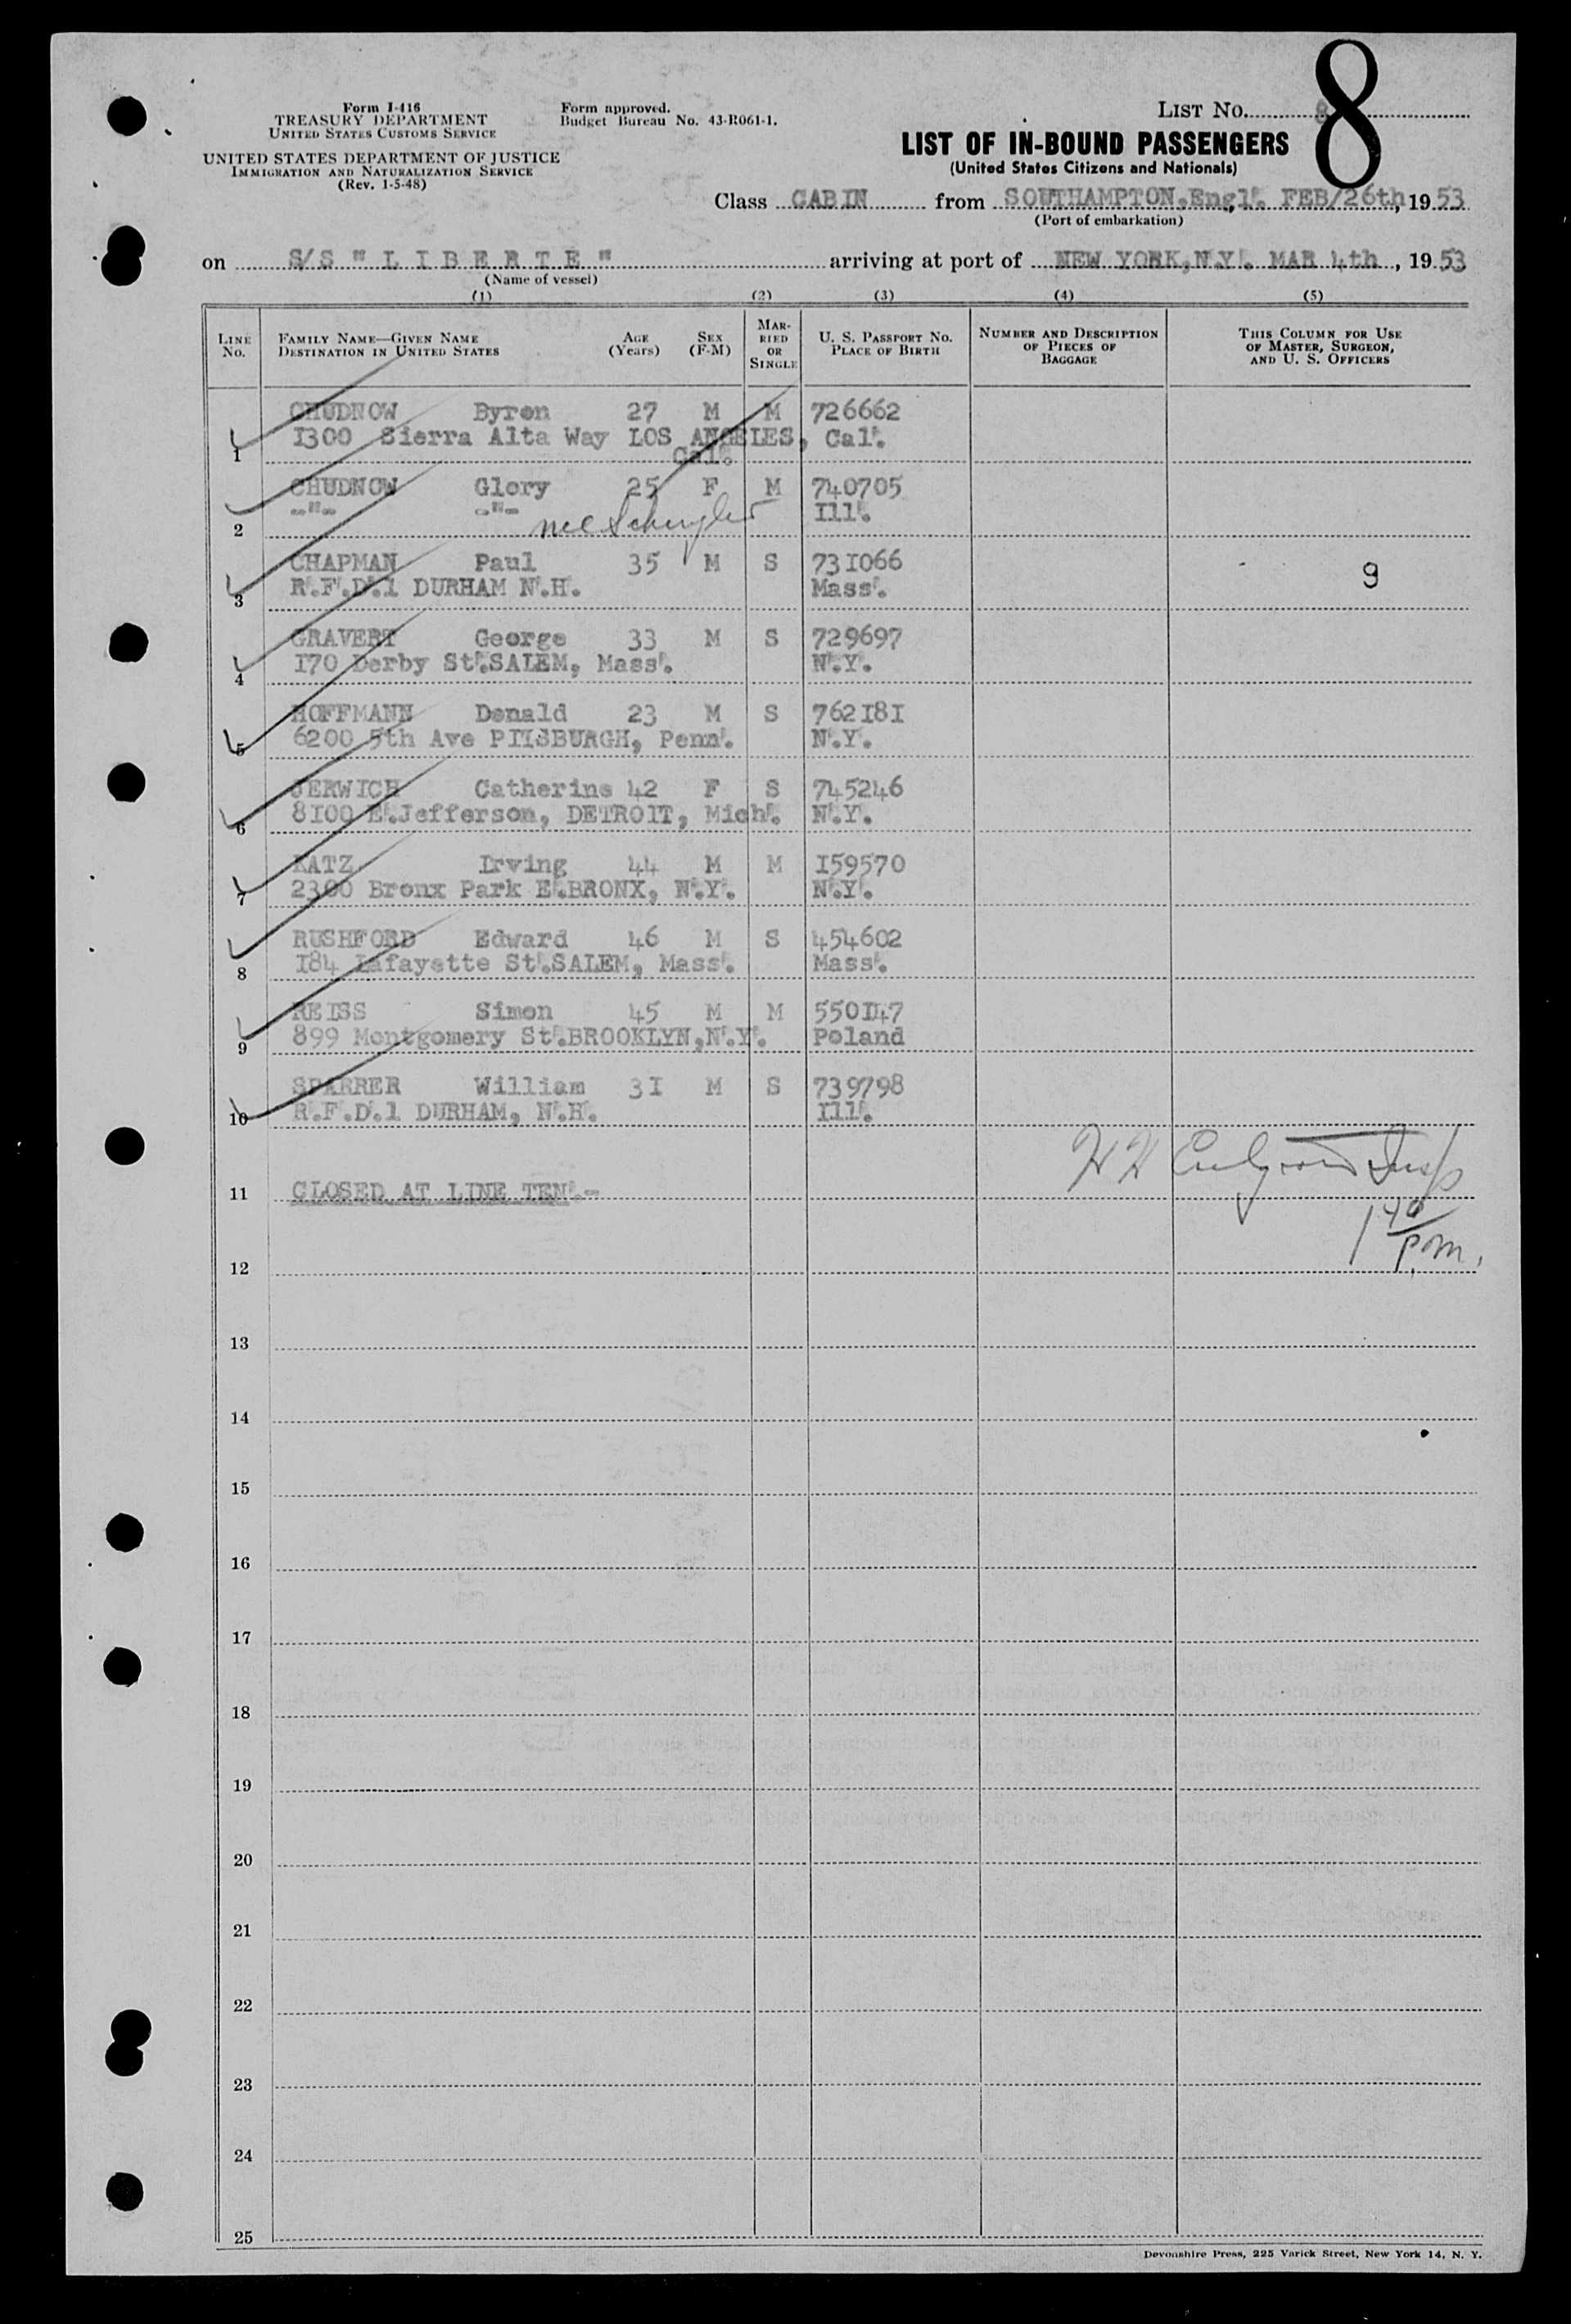 Form I-416
TREASURY DEPARTMENT
UNITED STATES CUSTOMS SERVICE
UNITED STATES DEPARTMENT OF JUSTICE
IMMIGRATION AND NATURALIZATION SERVICE
(Rev. 1-5-48)
Form approved.
Budget Bureau No. 43-R061-1.
LIST No. 8
8
LIST OF IN-BOUND PASSENGERS
(United States Citizens and Nationals)
Class CABIN from SOUTHAMPTON,Engl. FEB/26th, 19 53
(Port of embarkation)
on S/S " L I B E R T E " arriving at port of NEW YORK,N.Y. MAR 4th, 19 53
(Name of vessel)
(1) (2) (3) (4) (5)
LINE No.
FAMILY NAME—GIVEN NAME
DESTINATION IN UNITED STATES
AGE (Years)
SEX (F-M)
MARRIED OR SINGLE
U. S. PASSPORT No.
PLACE OF BIRTH
NUMBER AND DESCRIPTION OF PIECES OF BAGGAGE
THIS COLUMN FOR USE OF MASTER, SURGEON, AND U. S. OFFICERS
CHUDNOW Byron 27 M M 726662
1 1300 Sierra Alta Way LOS ANGELES, Cal.
Cal.
CHUDNOW Glory 25 F M 740705
2 -"- -"- Ill.
nee
CHAPMAN Paul 35 M S 731066
3 R.F.D.1 DURHAM N.H. Mass. 9
GRAVERT George 33 M S 729697
4 170 Derby St.SALEM, Mass. N.Y.
HOFFMANN Donald 23 M S 762181
5 6200 5th Ave PITSBURGH, Penn. N.Y.
JERWICH Catherine 42 F S 745246
6 8100 E.Jefferson, DETROIT, Mich. N.Y.
KATZ Irving 44 M M 159570
7 2300 Bronx Park E.BRONX, N.Y. N.Y.
RUSHFORD Edward 46 M S 454602
8 184 Lafayette St.SALEM, Mass. Mass.
REISS Simon 45 M M 550147
9 899 Montgomery St.BROOKLYN,N.Y. Poland
SPARRER William 31 M S 739798
10 R.F.D.1 DURHAM, N.H. Ill.
11 CLOSED AT LINE TEN.-
1 40 p.m.
12
13
14
15
16
17
18
19
20
21
22
23
24
25
Devonshire Press, 225 Varick Street, New York 14, N. Y.